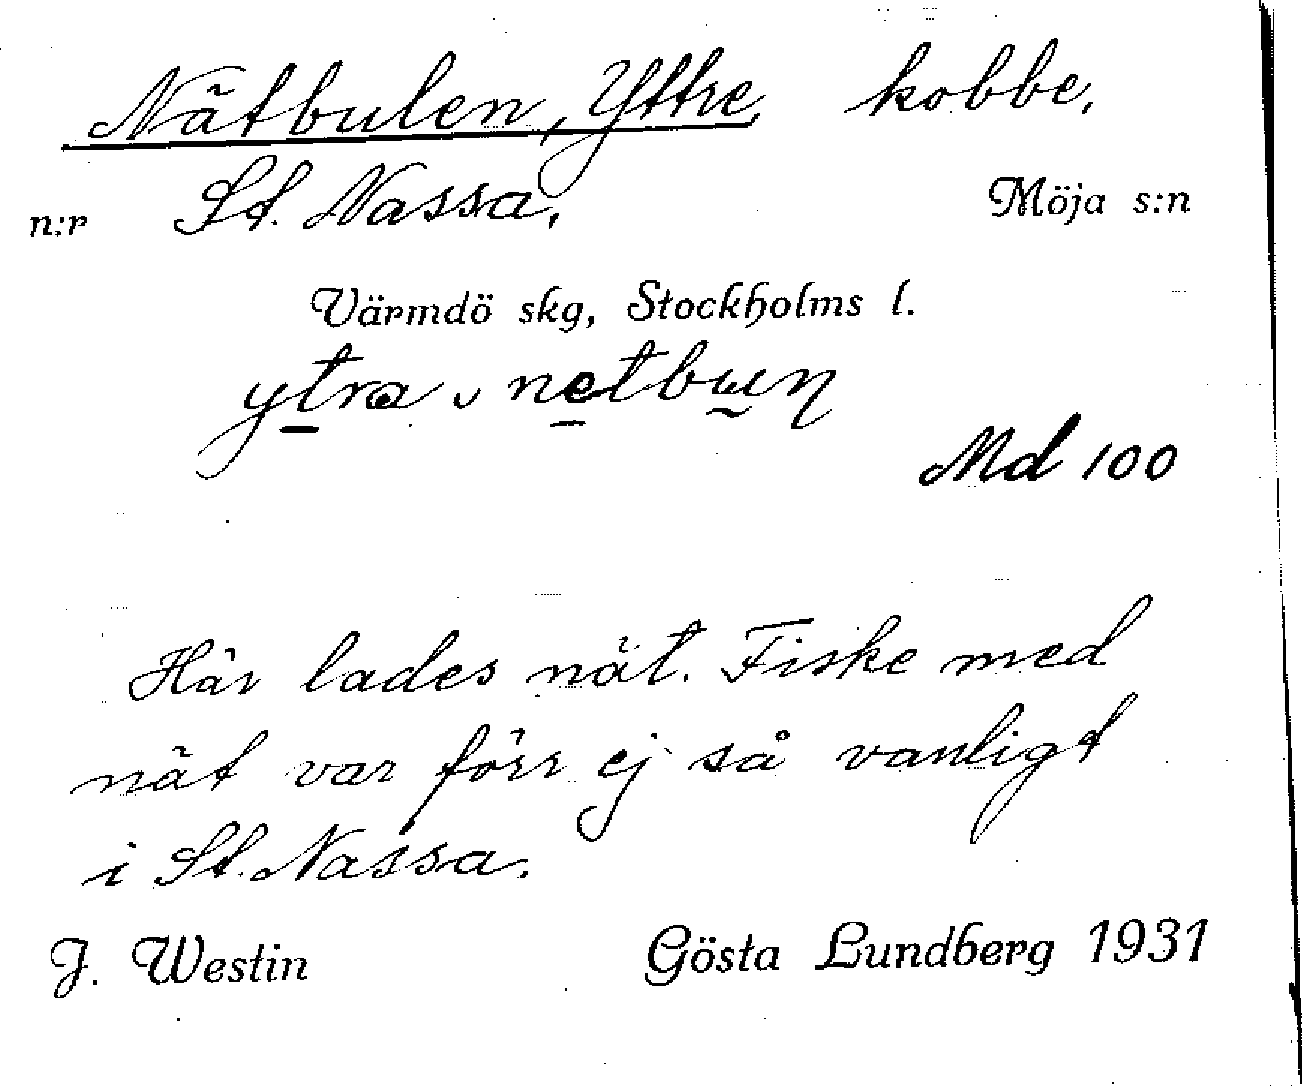 Nätbulen, Yttre, kobbe,
n:r St. Nassa, Möja s:n
Värmdö skg, Stockholms l.
Md 100
Här lades nät. Fiske med
nät var förr ej så vanligt
i St. Nassa.
J. Westin Gösta Lundberg 1931